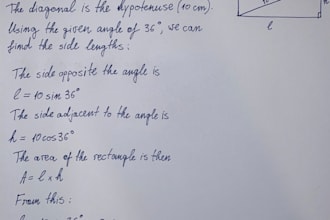 The diagonal is the hypotenuse (10 cm).
Using the given angle of 36°, we can
find the side lengths:
The side opposite the angle is
l = 10 sin 36°
The side adjacent to the angle is
h = 10 cos 36°
The area of the rectangle is then
A = l x h
From this:
l